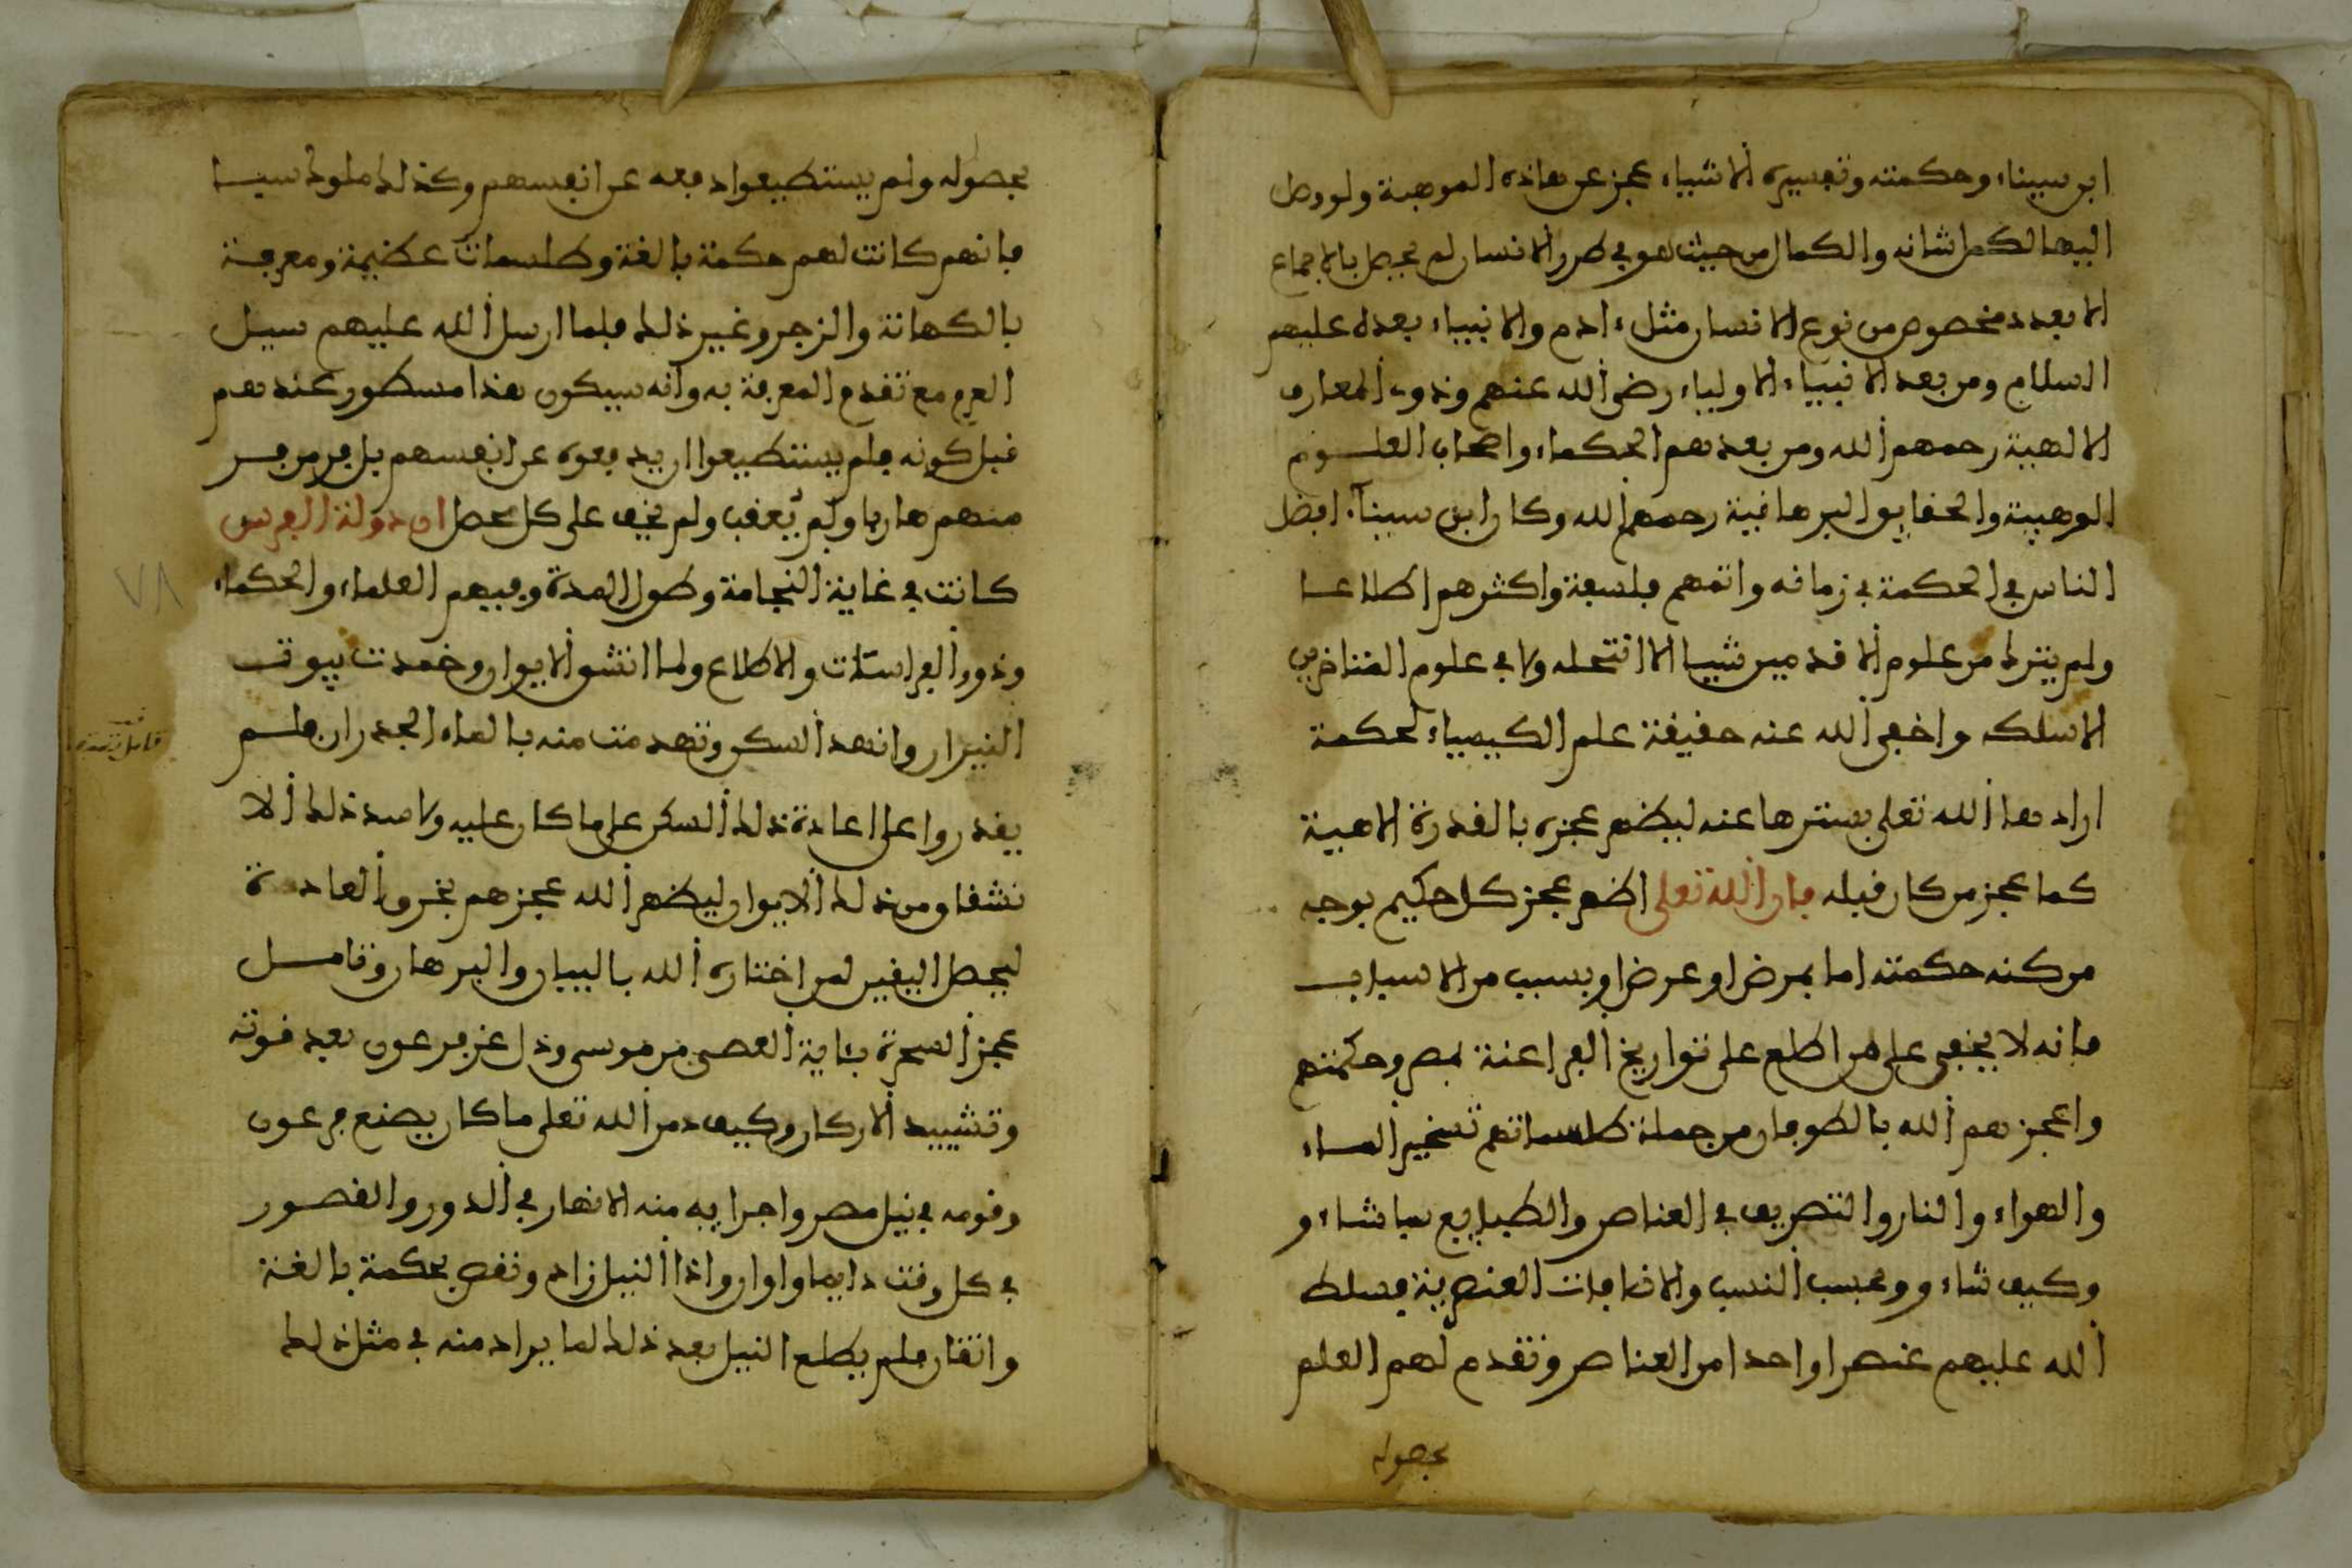 ابن سيناء وحكمته وتفسيره الاشياء عجز عن هاذه الموهبة ولو وصل
اليها لكمل شانه والكمال من حيث هو في طور الانسان لم يحصل بالاجماع
الا بعدد مخصوص من نوع الانسان مثل ءادم والانبياء بعده عليهم
السلام ومن بعد الانبياء الاولياء رضي الله عنهم وذوو المعارف
الالهية رحمهم الله ومن بعدهم الحكماء واصحاب العلوم
الوهبية والحقايق البرهانية رحمهم الله وكان ابن سيناء افضل
الناس في الحكمة في زمانه واتمهم فلسفة واكثرهم اطلاعا
ولم يترك من علوم الاقدمين شييا الا انتحله ولا في علوم المتاخرين
الا سلكه واخفى الله عنه حقيقة علم الكيمياء لحكمة
ارادها الله تعلى بسترها عنه ليظهر عجزه بالقدرة الاهية
كما عجز من كان قبله فان الله تعلى اظهر عجز كل حكيم بوجه
من كنه حكمته اما بمرض او عرض او بسبب من الاسباب
فانه لا يخفى على من اطلع على تواريخ الفراعنة بمصر وحكمتهم
واعجزهم الله بالطوفان من جملة طلسماتهم تسخير الماء
والهواء والنار والتصريف في العناصر والطبايع بما شاء و
وكيف شاء و وبحسب النسب والاضافات العنصرية فسلط
الله عليهم عنصرا واحدا من العناصر وتقدم لهم العلم
بحصوله
بحصوله ولم يستطيعوا دفعه عن انفسهم وكذلك ملوك سبا
فانهم كانت لهم حكمة بالغة وطلسمات عظيمة ومعرفة
بالكهانة والزجر وغير ذلك فلما ارسل الله عليهم سيل
العرم مع تقدم المعرفة به وانه سيكون هذا مسطور عندهم
قبل كونه فلم يستطيعوا ان يدفعوه عن انفسهم بل فر من فر
منهم هاربا ولم يعقب ولم يخف على كل محصل ان دولة الفرس
كانت في غاية الفخامة وطول المدة وفيهم العلماء والحكماء
وذوو الفراسات والاطلاع ولما انشق الايوان وخمدت بيوت
النيران وانهد السكر وتهدمت منه بالماء الجدران فلم
يقدروا على اعادة ذلك السكر على ما كان عليه ولا صد ذلك الا
نشقاق من ذلك الايوان ليظهر الله عجزهم بخرق العادة
ليحصل اليقين لمن اختاره الله بالبيان والبرهان وتامل
عجز السحرة بئاية العصى من موسى وذل عز فرعون بعد قوته
وتشييد الاركان وكيف دمر الله تعلى ما كان يصنع فرعون
وقومه في نيل مصر واجرايه منه الانهار في الدور والقصور
في كل وقت دايما واوان واذا النيل زاد ونقص بحكمة بالغة
واتقان فلم يطلع النيل بعد ذلك لما يراد منه في مثل ذلك
٧٨